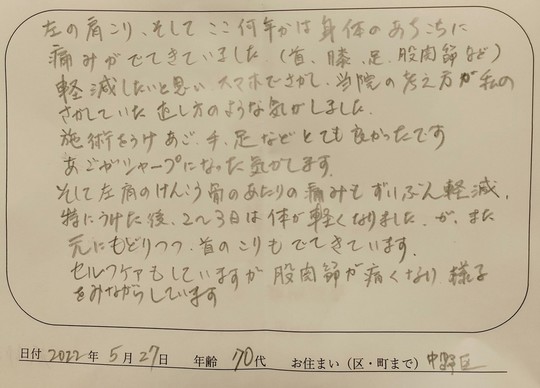 左の肩こり、そしてここ何年かは身体のあちこちに
痛みがでてきていました。(首、膝、足、股関節など)
軽減したいと思い、スマホでさがし、当院の考え方が私の
さがしていた直し方のような気がしました。
施術をうけあご、手、足などとても良かったです
あごがシャープになった気がします。
そして左肩のけんこう骨のあたりの痛みもずいぶん軽減。
特にうけた後、2〜3日は体が軽くなりました。が、また
元にもどりつつ、首のこりもでてきています。
セルフケアもしていますが股関節が痛くなり、様子
をみながらしています
日付 2022年 5月27日 年齢 70代 お住まい(区・町まで) 中野区